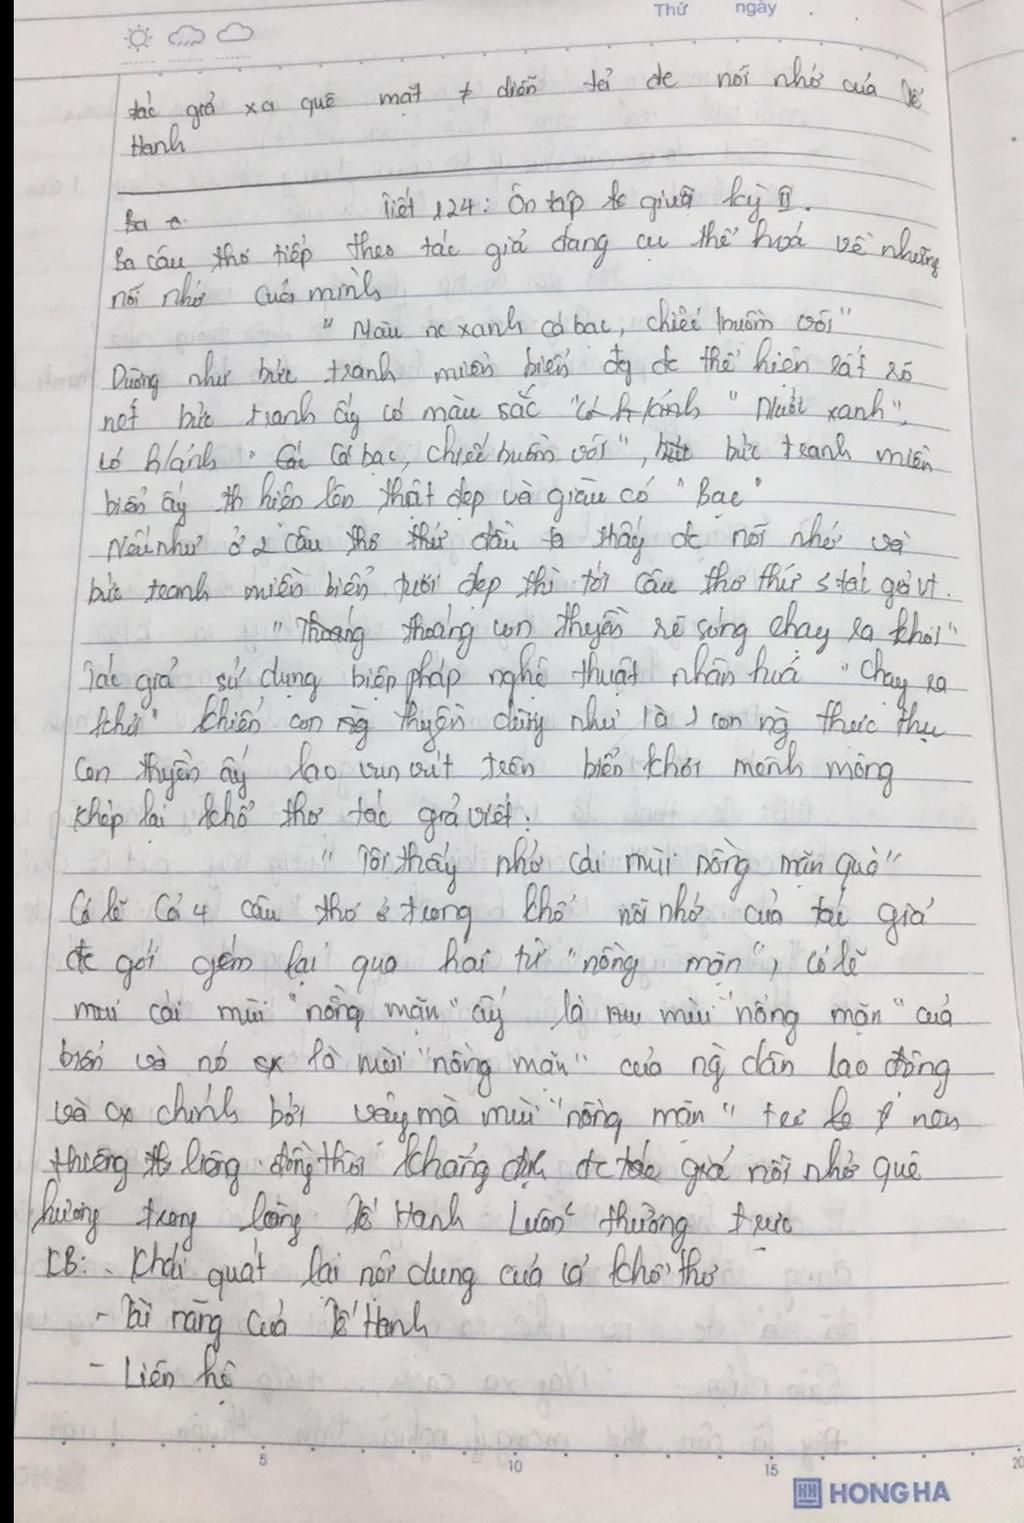 Thứ ngày
tác giả xa quê mặt ≠ diễn tả đc nỗi nhớ của Tế
Hanh
Tiết 124: Ôn tập giữa kỳ II.
Ba câu thơ tiếp theo tác giả đang cụ thể hoá về những
nỗi nhớ của mình
" Màu nc xanh cá bạc, chiếc buồm vôi"
Dường như bức tranh miền biển đg đc thể hiện rất rõ
nét bức tranh ấy có màu sắc " Nước xanh",
có h/ảnh " Cá bạc, chiếc buồm vôi", bức tranh miền
biển ấy hiện lên thật đẹp và giàu có "Bạc"
Nếu như ở 2 câu thơ thứ đầu ta thấy đc nỗi nhớ và
bức tranh miền biển tươi đẹp thì tới câu thơ thứ 3 tác giả vt.
" Thoáng thoáng con thuyền rẽ sóng chạy ra khơi"
Tác giả sử dụng biện pháp nghệ thuật nhân hoá "chạy ra
khơi" khiến con thuyền dừng như là 1 con ng thực thụ
Con thuyền ấy lao vun vút trên biển khơi mênh mông
Khép lại khổ thơ tác giả viết:
" Tôi thấy nhớ cái mùi nồng mặn quá"
Có lẽ cả 4 câu thơ ở trong khổ nỗi nhớ của tác giả
đc gói gém lại qua hai từ "nồng mặn", có lẽ
cái mùi "nồng mặn" ấy là mùi "nồng mặn" của
biển và nó cx là mùi "nồng mặn" của ng dân lao động
và cx chính bởi vậy mà mùi "nồng mặn" nên
thiêng liêng đồng thời khẳng đc tác giả nỗi nhớ quê
hương trong lòng Tế Hanh Luôn thường trực
KB: - Khái quát lại nội dung của cả khổ thơ
- Tài năng của Tế Hanh
- Liên hệ
5 10 15 20
HONG HA